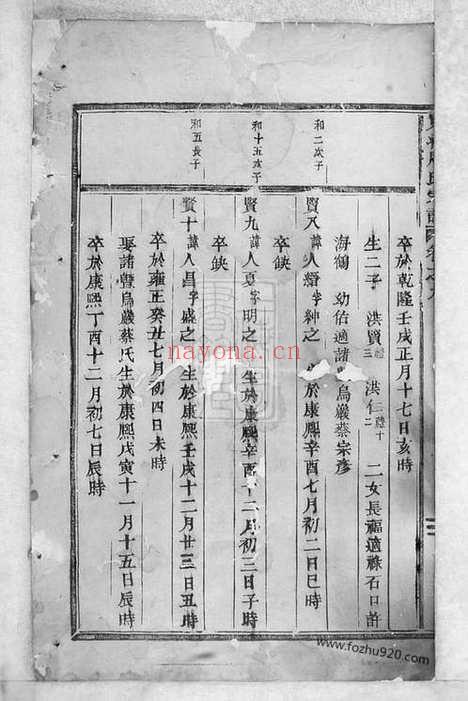 卒於乾隆壬戌正月十七日亥時
生二子 洪賢 三 洪仁 二 二女長福適祿石口許
海鶴 幼佑適諸 烏嚴蔡宗彥
和二次子
賢八 諱人縉字紳之 於康熙辛酉七月初二日巳時
卒缺
和十五次子
賢九 諱人夏字明之 生於康熙辛酉十二月初三日子時
卒缺
和五長子
賢十 諱人昌字盛之 生於康熙壬戌十二月廿三日丑時
卒於雍正癸丑七月初四日未時
娶諸暨烏嚴蔡氏生於康熙戊寅十一月十五日辰時
卒於康熙丁酉十二月初七日辰時
nayona.cn
www.fozhu920.com